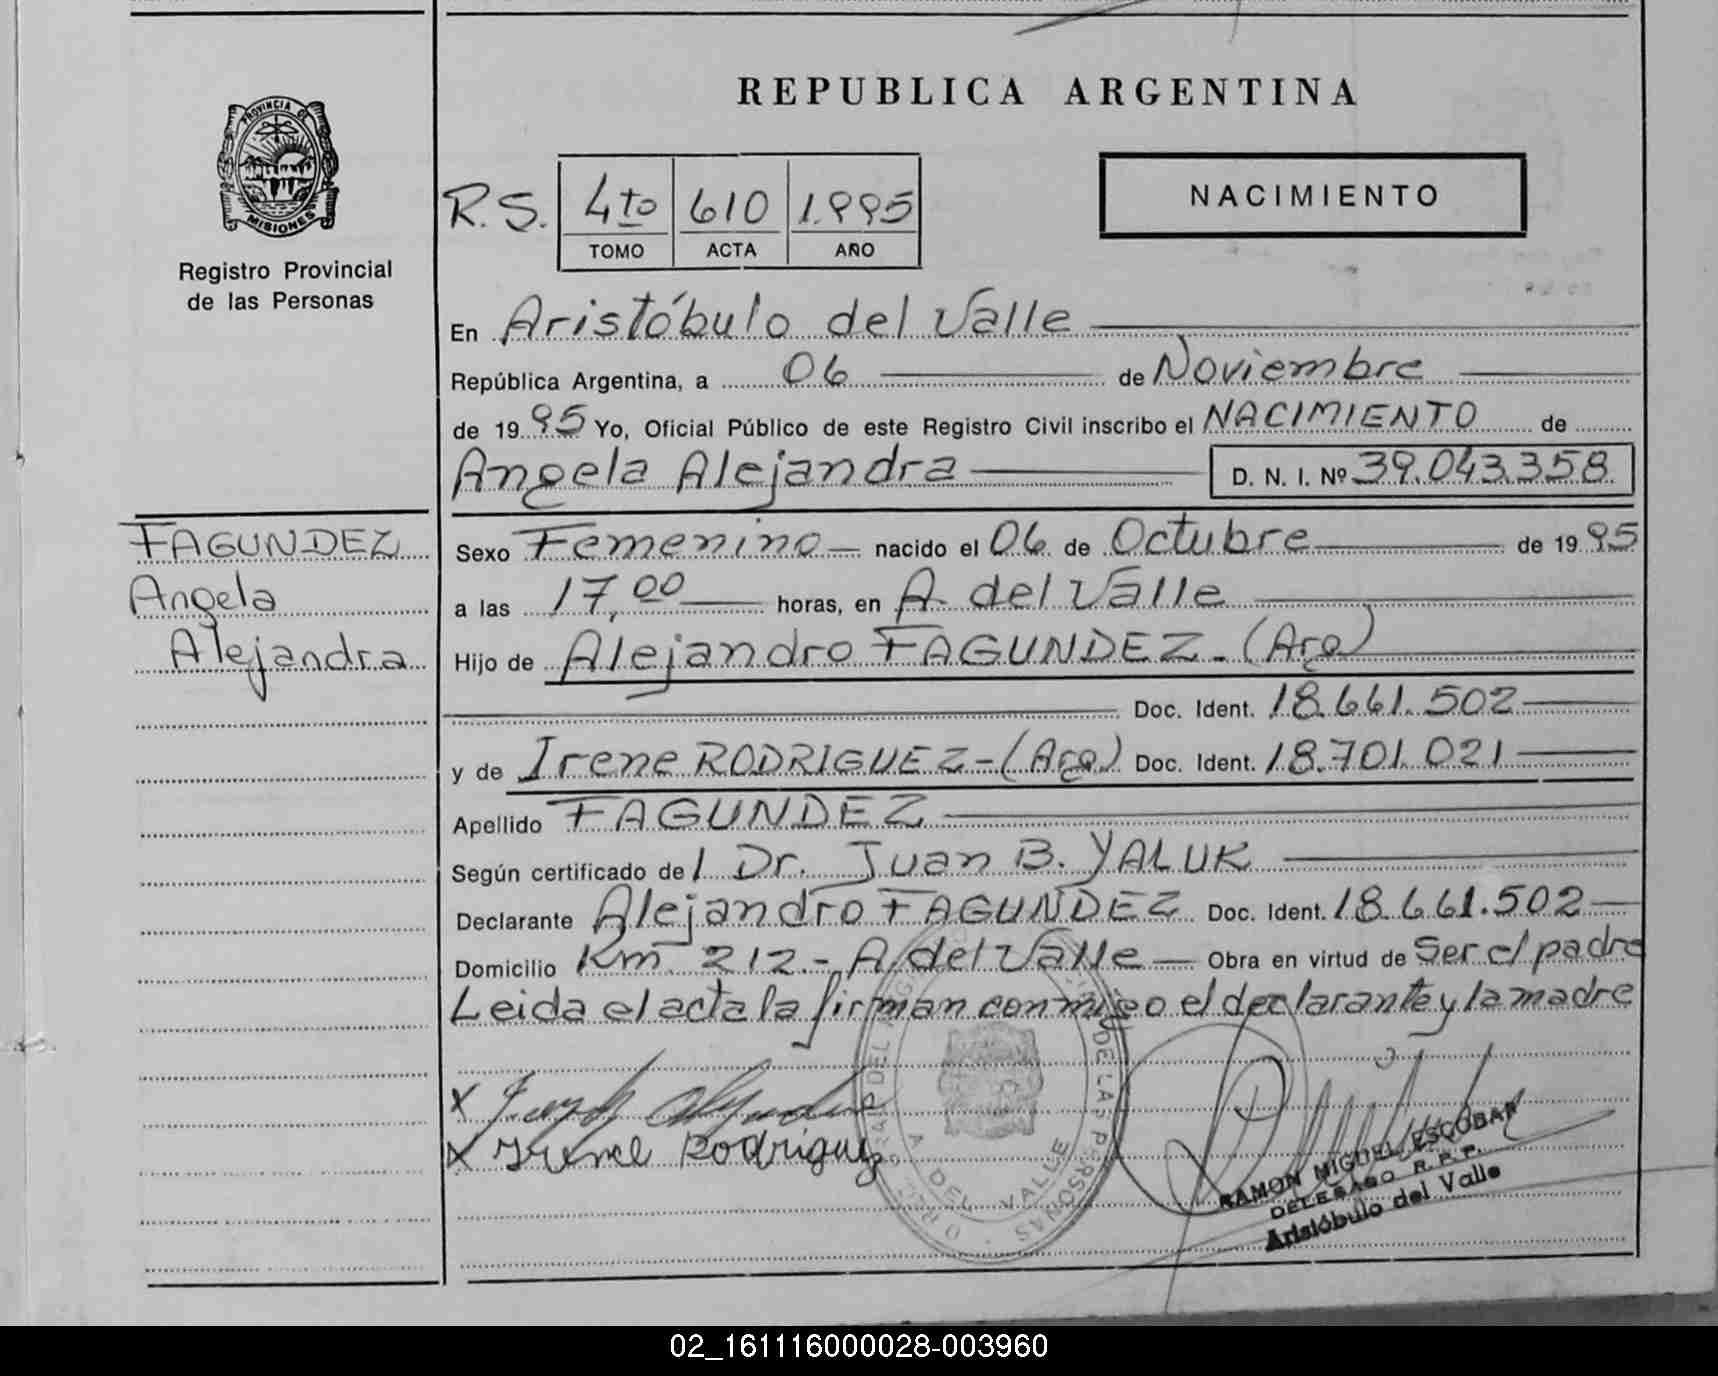 REPUBLICA ARGENTINA
PROVINCIA DE
MISIONES
Registro Provincial
de las Personas
NACIMIENTO
R.S. 4to 610 1.995
TOMO ACTA AÑO
En Aristóbulo del Valle
República Argentina, a 06 de Noviembre
de 19 95 Yo, Oficial Público de este Registro Civil inscribo el NACIMIENTO de
Angela Alejandra D. N. I. Nº 39.043.358
FAGUNDEZ
Angela
Alejandra
Sexo Femenino nacido el 06 de Octubre de 19 95
a las 17,00 horas, en A. del Valle
Hijo de Alejandro FAGUNDEZ - (Arg)
Doc. Ident. 18.661.502
y de Irene RODRIGUEZ - (Arg) Doc. Ident. 18.701.021
Apellido FAGUNDEZ
Según certificado de l Dr. Juan B. YALUK
Declarante Alejandro FAGUNDEZ Doc. Ident. 18.661.502
Domicilio Km 212 - A. del Valle Obra en virtud de Ser el padre
Leida el acta la firman conmigo el declarante y la madre
X
X Irene Rodriguez
DE LAS PERSONAS
A DEL VALLE
RAMON MIGUEL ESCOBAR
DELEGADO R.P.P.
Aristóbulo del Valle
02_161116000028-003960